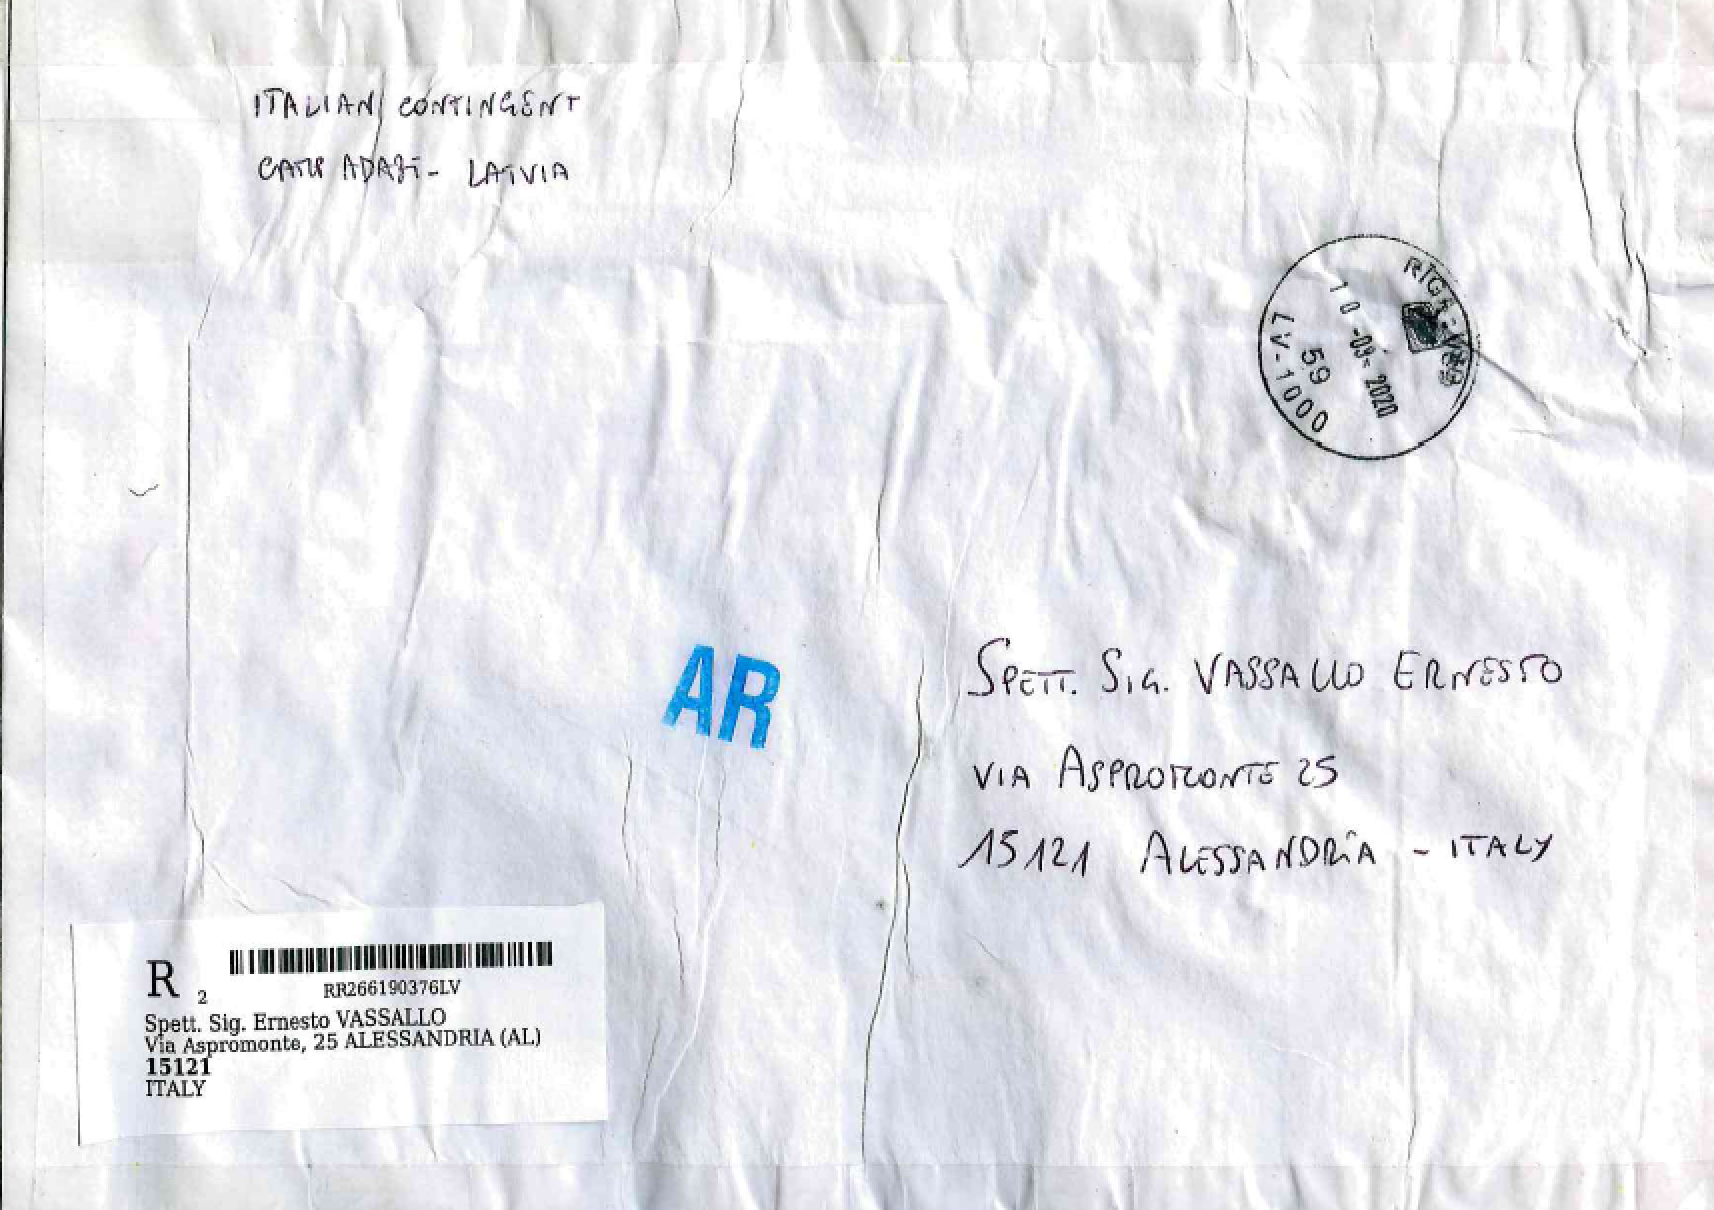 ITALIAN CONTINGENT
CAMP ADAŽI - LATVIA
RIGA
10 -09- 2020
59
LV-1000
AR
SPETT. SIG. VASSALLO ERNESTO
VIA ASPROMONTE 25
15121 ALESSANDRIA - ITALY
R 2
RR266190376LV
Spett. Sig. Ernesto VASSALLO
Via Aspromonte, 25 ALESSANDRIA (AL)
15121
ITALY